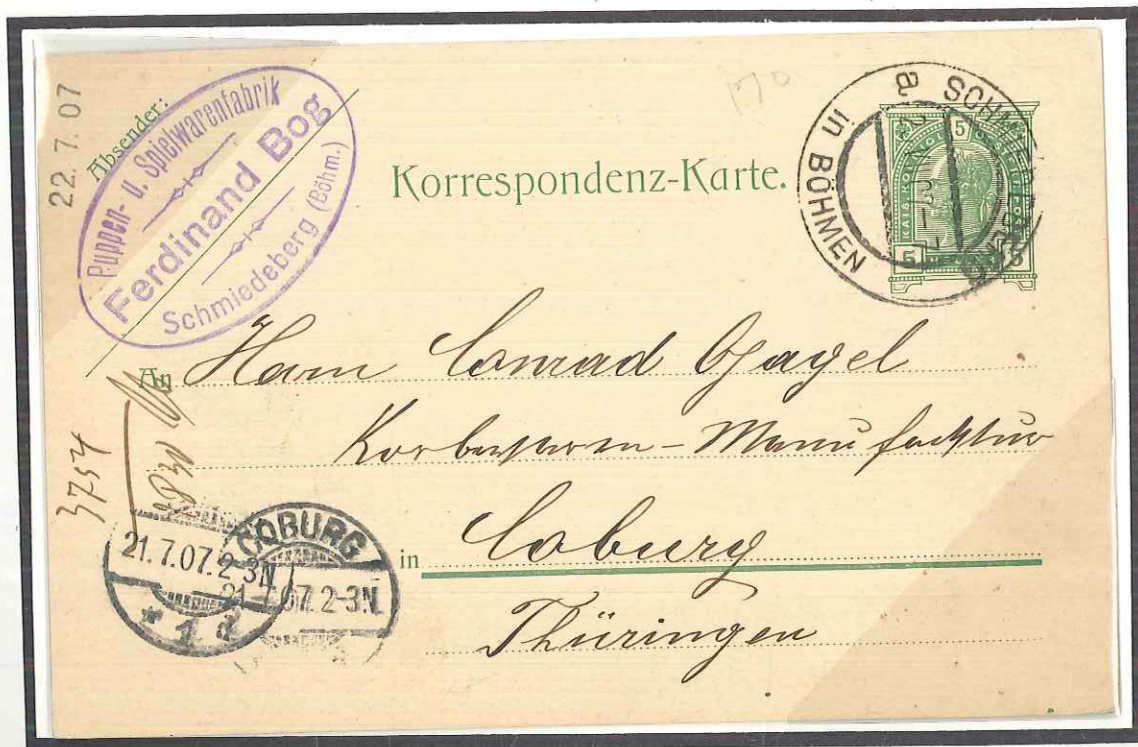 22. 7. 07
Absender:
Puppen- u. Spielwarenfabrik
Ferdinand Bog
Schmiedeberg (Böhm.)
170
Korrespondenz-Karte.
in BÖHMEN
a
5
5
5
An Herrn Conrad Gagel
Korbwaren-Manufacktur
in Coburg
Thüringen
3754
COBURG
21.7.07.2-3N.
* 1 d
21.7.07.2-3N.